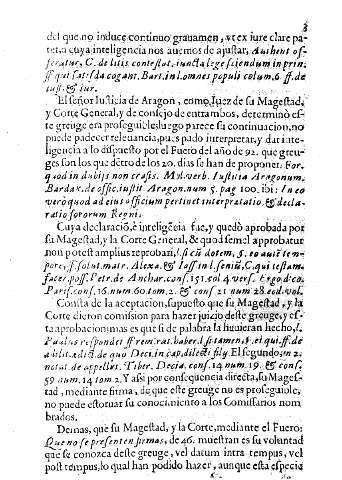 del que no induce continuo grauamen, vt ex iure clare pa-
tet, a cuya inteligencia nos auemos de ajustar, Authent. of-
feratur, C. de litis contestat. iuncta lege sciendum in prin.
ff. qui satisda cogant. Bart. in l. omnes populi colum. 6. ff. de
iust. & iur.
El señor Iusticia de Aragon, como Iuez de su Magestad,
y Corte General, y de consejo de entrambos, determinò es-
te greuge era proseguible, luego parece su continuacion, no
puede padecer renunciacion, pues pudo interpretar, y dar inte-
ligencia a lo dispuesto por el Fuero del año de 92. que greu-
ges son los que dẽtro de los 20. dias se han de proponer. For.
quod in dubijs non crassis. Mol. verb. Iustitia Aragonum.
Bardax. de offic. iustit. Aragon. num. 5. pag. 100. ibi: In eo
verò quod ad eius officium pertinet interpretatio & decla-
ratio fororum Regni.
Cuya declaraciõ, è inteligẽcia fue, y quedò aprobada por
su Magestad, y la Corte General, & quod semel approbatur
non potest amplius reprobari, l. si cũ dotem, 5. eo autẽ tem-
pore, ff. solut. matr. Alexa. & Iass. in l. seniũ, C. qui testam.
facer. poss. Petr. de Anchar. cons. 151. col. 4. vers. Ergo dico
Paris. cons. 16. num. 60. tom. 2. & cons. 21. num. 28. eod. vol.
Consta de la aceptacion, supuesto que su Magestad, y la
Corte dieron comission para hazer juizio deste greuge, y es-
ta aprobacion mas es que si de palabra la huuieran hecho, l.
Paulus respondet ff. rem rat. haber. l. si tamen, §. ei qui. ff. de
ædilit. edict. & quo Deci. in cap. dilecti filij. El segundo, in 2.
notat. de appellat. Tiber. Decia. cons. 14. num. 19. & cons.
59. num. 14. tom. 2. Y assi por consequencia directa, su Mages-
tad, mediante firma, de que este greuge no es proseguible,
no puede estoruar su conocimiento a los Comissarios nom
brados.
Demas, que su Magestad, y la Corte, mediante el Fuero:
Que no se presenten firmas, de 46. muestran es su voluntad
que se conozca deste greuge, vel datum intra tempus, vel
post tempus, lo qual han podido hazer, aunque esta especia